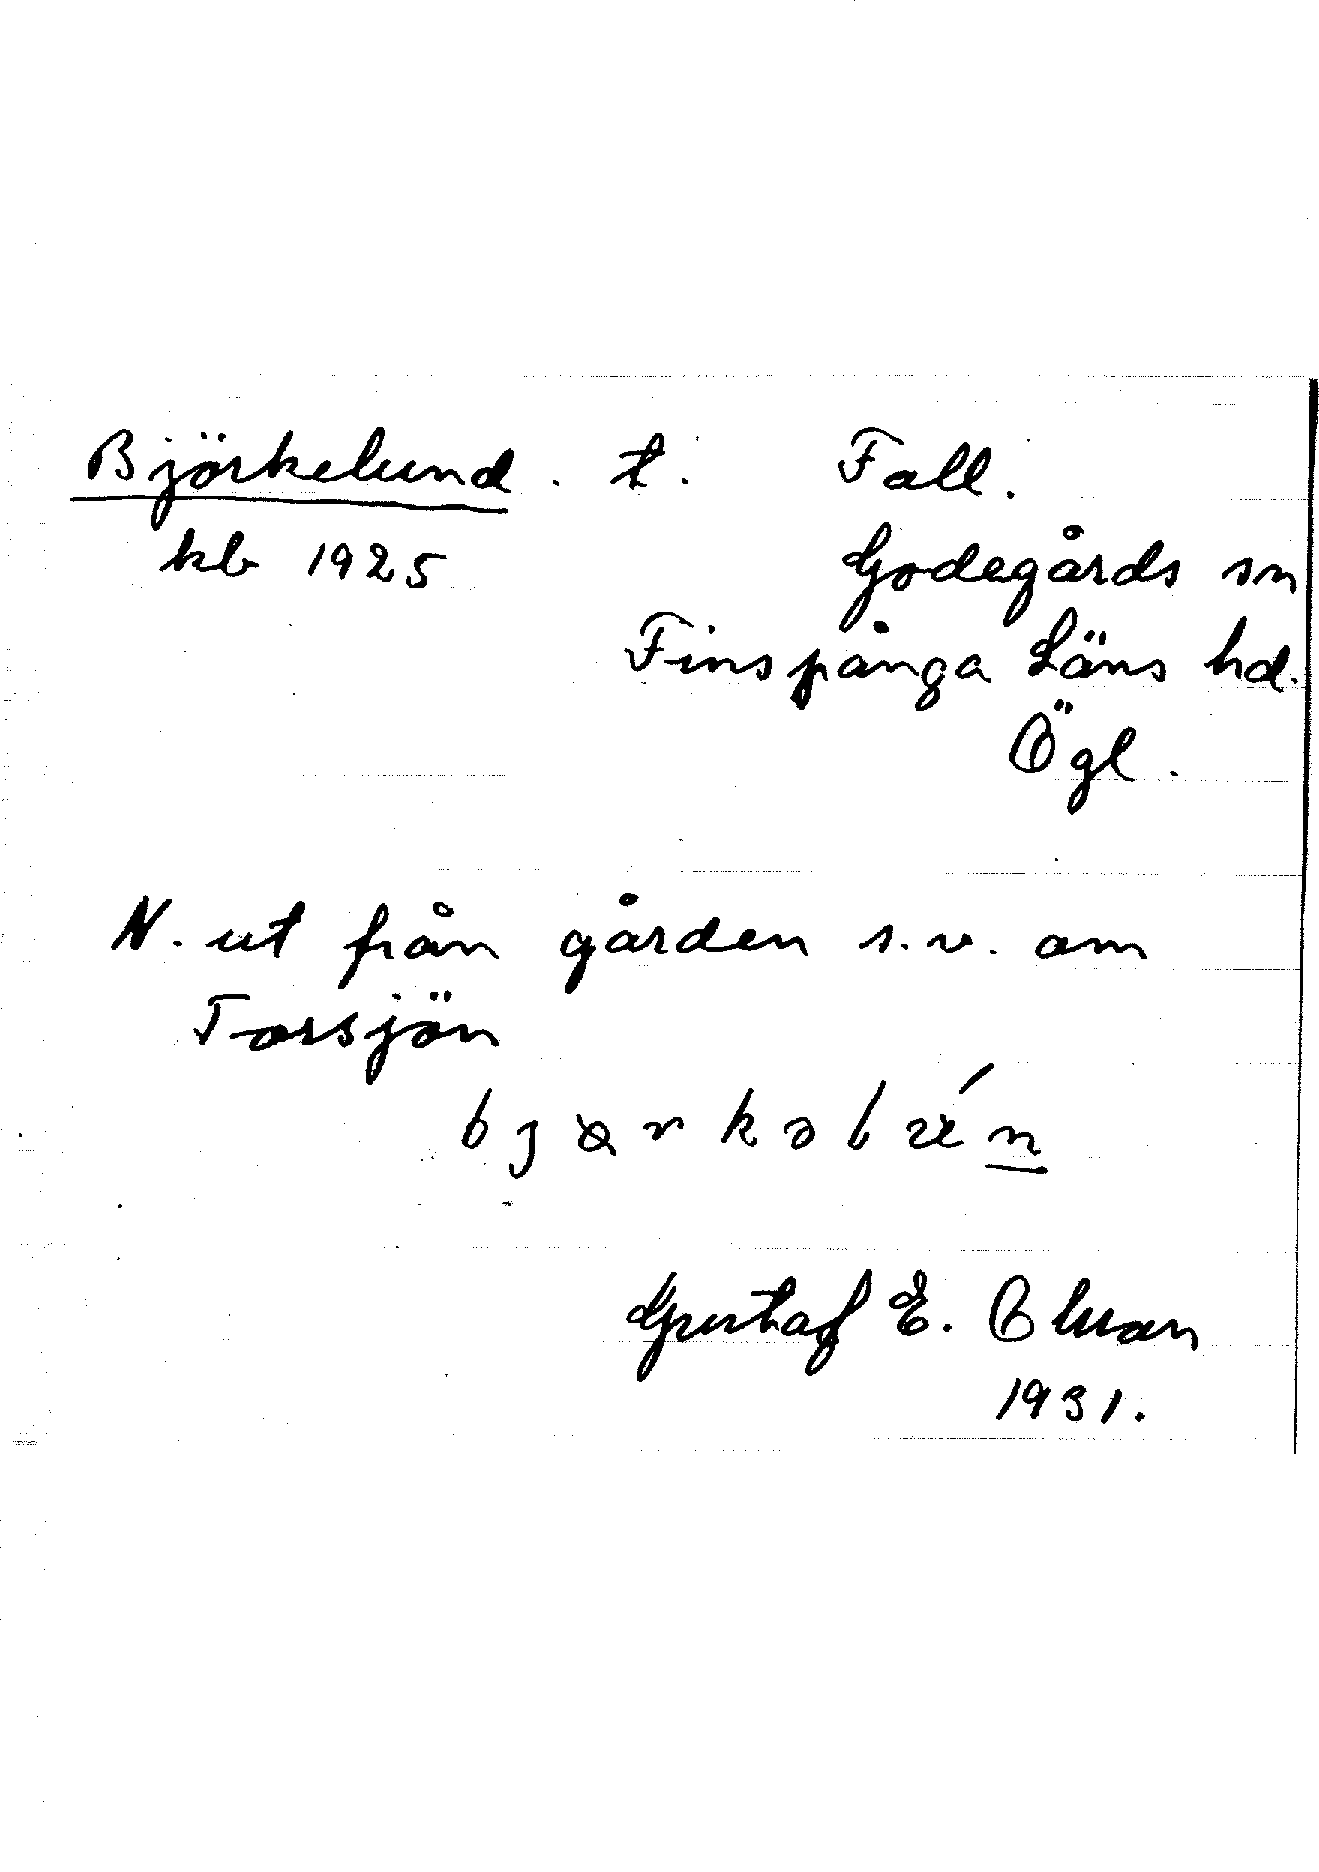 Björkelund. t. Fall.
kb 1925 Godegårds sn
Finspånga Läns hd.
Ögl.
N. ut från gården s.v. om
Torsjön
Gustaf E. Olsson
1931.